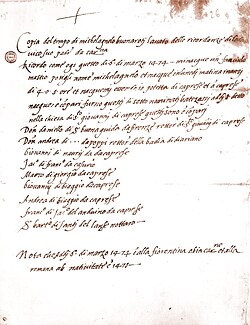 Copia del tempo di michelagnolo buonaroti cavato delle ricordanze di
suo padre
Ricordo come ogi questo di 6 di marzo 1474 mi nacque un fanciullo
mastio posigli nome michelagnolo et nacque inanzi matina inanzi
di 4 o 5 ore et nacquemi essendo io potestà di caprese et a caprese
nacque e i conpari furno questi di sotto nominati batezossi addi 8 detto
nella chiesa di sto giovanni di caprese questi sono e conpari
Don daniello di s buona guida da firenze rettor di sto giovanni di caprese
Don andrea di ... da poppi rettor della badia di diariano
giovanni di nanni da caprese
Jaco di francesco da casurio
Marco di giorgio da caprese
giovanni di biaggio da caprese
Andrea di biaggio da caprese
franco di Jaco del anduino da caprese
S bartco di santi del lanse nottaro
Nota che addi 6 di marzo 1474 è alla fiorentina ab incarne et alla
romana ab nativitate è 1475